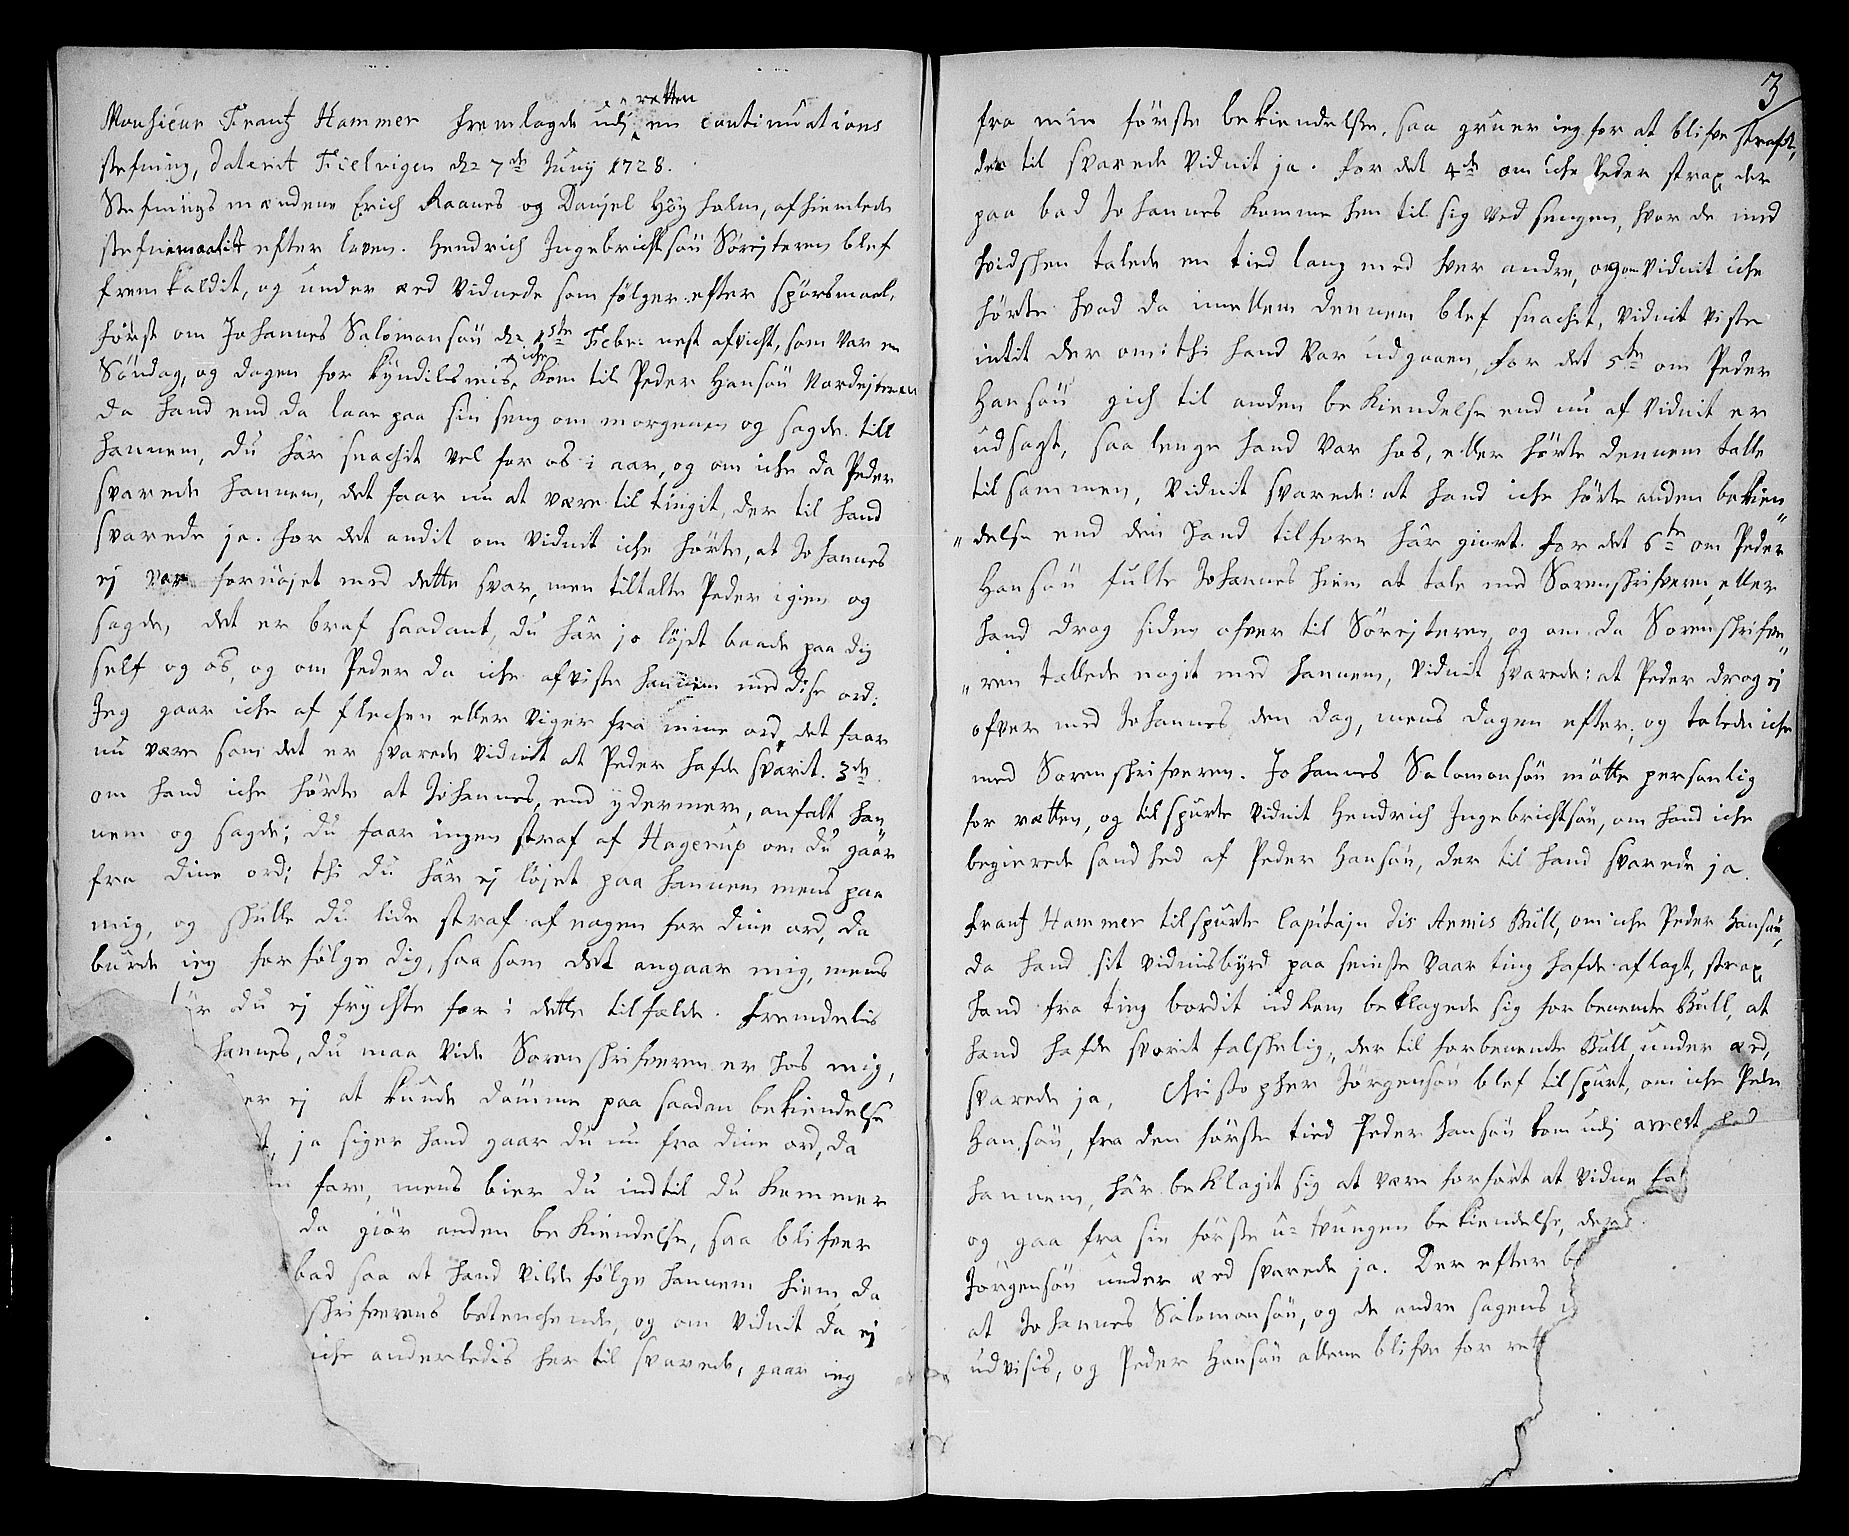 Monsieur Frantz Hammer fremlagde udj retten en continuations
stefning, daterit Fielvigen d: 7de Junÿ 1728.
Stefnings mændene Erich Raanes og Danjel Höÿ holm, afhiemlede
stefnemaalit efter loven. Hendrich Ingebrichtsøn Sörejteren blef
fremkaldit, og under æd vidnede som fölger efter spörsmaal,
först om Johannes Salomonsøn d: 1ste Febr: nest afvicht, som var en
Söndag, og dagen for kÿndilsmis, iche kom til Peder Hansøn Nordejteren
da hand end da laae paa sin seng om morgenen og sagde till
hannem, du hår snachit vel for os i aar, og om iche da Peder
svarede hannem, det faar nu at være til tingit, der til hand
svarede ja. For det andit om vidnit iche hörte, at Johannes
ej var fornöjet med dette svar, men tiltalte Peder igien og
sagde, det er braf saadant, du hår jo löjet baade paa dig
self og os, og om Peder da iche afviste hannem med disse ord:
Jeg gaar iche af flechen eller viger fra mine ord, det faar
nu være som det er svarede vidnit at Peder hafde svarit. 3de
om hand iche hörte at Johannes, end ÿdermere, anfalt han
nem og sagde; du faar ingen straf af Hagerup om du gaar
fra dine ord; thi du hår ej löjet paa hannem mens paa
mig, og skulle du lide straf af nogen for dine ord, da
burde ieg forfölge dig, saa som det angaar mig, mens
du ej frÿchte for i dette tilfælde. Fremdelis
hannes, du maa vide Sorenskrifveren er hos mig,
er ej at kunde dömme paa saadan bekiendelse
t, ja siger hand gaar du nu fra dine ord, da
fare, mens bier du indtil du kommer
da giör anden bekiendelse, saa blifver
bad saa at hand vilde fölge hannem hiem, da
skrifverens betenchende, og om vidnit da ej
iche anderledis her til svarede, gaar ieg
3
fra min förste bekiendelse, saa gruer ieg for at blifve straft,
der til svarede vidnit ja. For det 4de om iche Peder strax der
paa bad Johannes komme hen til sig ved sengen, hvor de med
hvidshen talede en tied lang med hver andre, og om vidnit iche
hörte hvad da imellem dennem blef snachit, vidnit viste
intit der om: thi hand var udgaaen, for det 5te om Peder
Hansøn gich til anden bekiendelse end nu af vidnit er
udsagt, saa lenge hand var hos, eller hörte dennem talle
tilsammen, vidnit svarede: at hand iche hörte anden bekien„
„delse end den hand tilforn hår giort. For det 6te om Peder
Hansøn fulte Johannes hiem at tale med Sorenskrifveren, eller
hand drog siden ofver til Sörejteren, og om da Sorenskrifve„
„ren tallede nogit med hannem, vidnit svarede: at Peder drog ej
ofver med Johannes den dag, mens dagen efter, og talede iche
med Sorenskrifveren. Johannes Salomonsøn mötte personlig
for rætten, og tilspurte vidnit Hendrich Ingebrichtsøn, om hand iche
begierede sandhed af Peder Hansøn, der til hand svarede ja.
Frantz Hammer tilspurte Capitajn dis Armis Bull, om iche Peder Hansøn,
da hand sit vidnisbÿrd paa seniste vaar ting hafde aflagt, strax
hand fra ting bordit udkom beklagede sig for benevnte Bull, at
hand hafde svorit falskelig, der til forbenevnte Bull under æd,
svarede ja, Christopher Jörgensøn blef tilspurt, om iche Peder
Hansøn, fra den förste tied Peder Hansøn kom udj arrest hos
hannem, hår beklagit sig at være forfört at vidne fal
og gaa fra sin förste u-tvungen bekiendelse, der
Jörgensøn under æd svarede ja. Der efter b
at Johannes Salomonsøn, og de andre sagens
udvisis, og Peder Hansøn allene blifve for rett